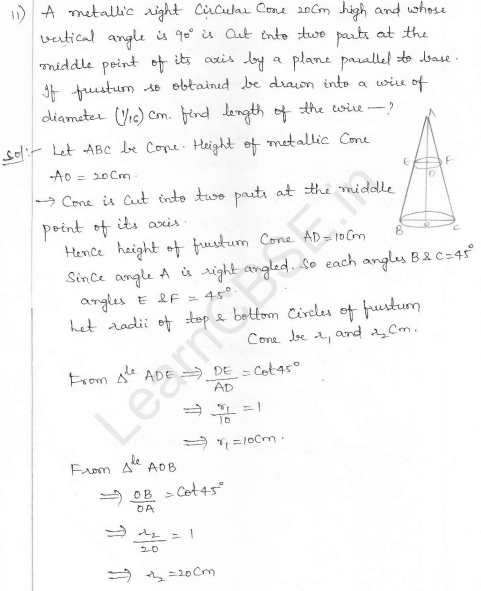 11) A metallic right Circular Cone 20cm high and whose
vertical angle is 90° is Cut into two parts at the
middle point of its axis by a plane parallel to base.
If frustum so obtained be drawn into a wire of
diameter (1/16) Cm. find length of the wire —?
Sol:- Let ABC be Cone. Height of metallic Cone
AO = 20Cm.
→ Cone is Cut into two parts at the middle
point of its axis.
Hence height of frustum Cone AD = 10Cm
Since angle A is right angled. So each angles B & C = 45°
angles E & F = 45°.
Let radii of top & bottom Circles of frustum
Cone be r₁ and r₂ Cm.
From Δle ADE ⇒ DE/AD = Cot45°
⇒ r₁/10 = 1
⇒ r₁ = 10Cm.
From Δle AOB
⇒ OB/OA = Cot45°
⇒ r₂/20 = 1
⇒ r₂ = 20Cm
A
E F
D
B O C
LearnCBSE.in